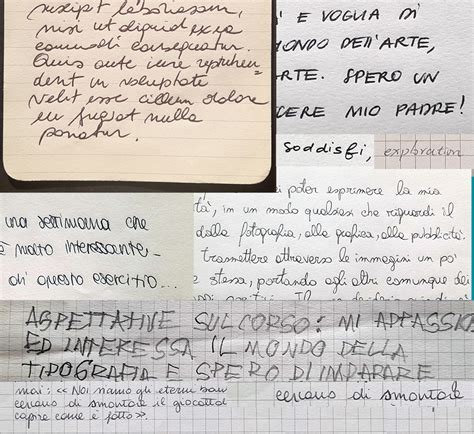 suscipit laboriosam,
nisi ut aliquid ex ea
commodi consequatur.
Quis aute iure reprehen-
derit in voluptate
velit esse cillum dolore
eu fugiat nulla
pariatur.
E VOGLIA DI
MONDO DELL'ARTE,
ARTE. SPERO UN
CERE MIO PADRE!
Soddisfi,
exploration
una settimana che
è molto interessante..
di questo esercizio...
di poter esprimere la mia
tà, in un modo qualsiasi che riguardi il
dalla fotografia, alla grafica, alla pubblicità.
trasmettere attraverso le immagini un po'
stessa, portando agli altri comunque dei
ASPETTATIVE SUL CORSO: MI APPASSIO
ED INTERESSA IL MONDO DELLA
TIPOGRAFIA E SPERO DI IMPARARE
mai: «Noi siamo gli eterni bam
cercano di smontare il giocattol
capire come è fatto».
cercano di smontare